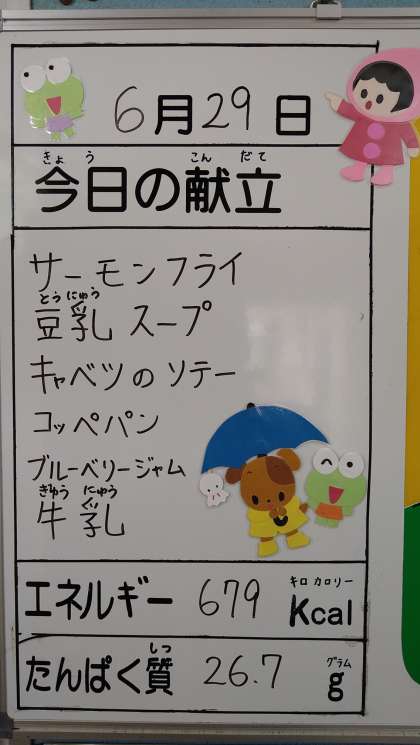 6月29日
きょう こんだて
今日の献立
サーモンフライ
とうにゅう
豆乳スープ
キャベツのソテー
コッペパン
ブルーベリージャム
ぎゅうにゅう
牛乳
キロカロリー
エネルギー 679 Kcal
しつ グラム
たんぱく質 26.7 g